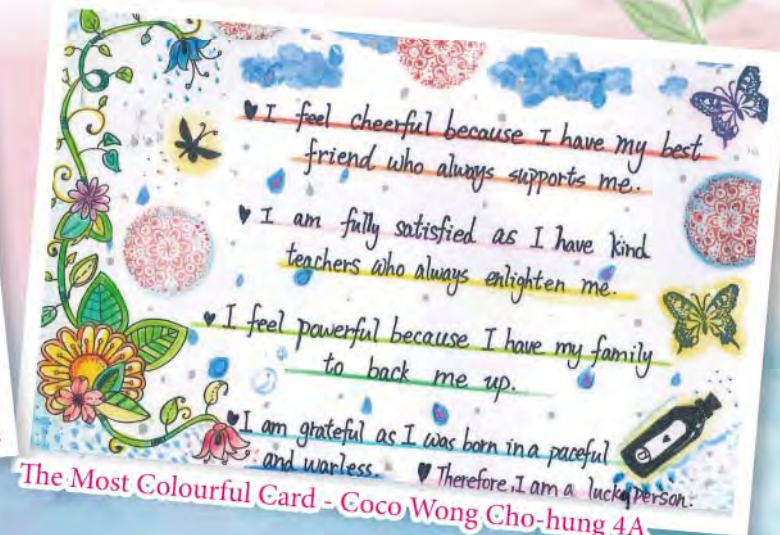 ♥ I feel cheerful because I have my best
friend who always supports me.
♥ I am fully satisfied as I have kind
teachers who always enlighten me.
♥ I feel powerful because I have my family
to back me up.
♥ I am grateful as I was born in a paceful
and warless. ♥ Therefore, I am a lucky person.
The Most Colourful Card - Coco Wong Cho-hung 4A